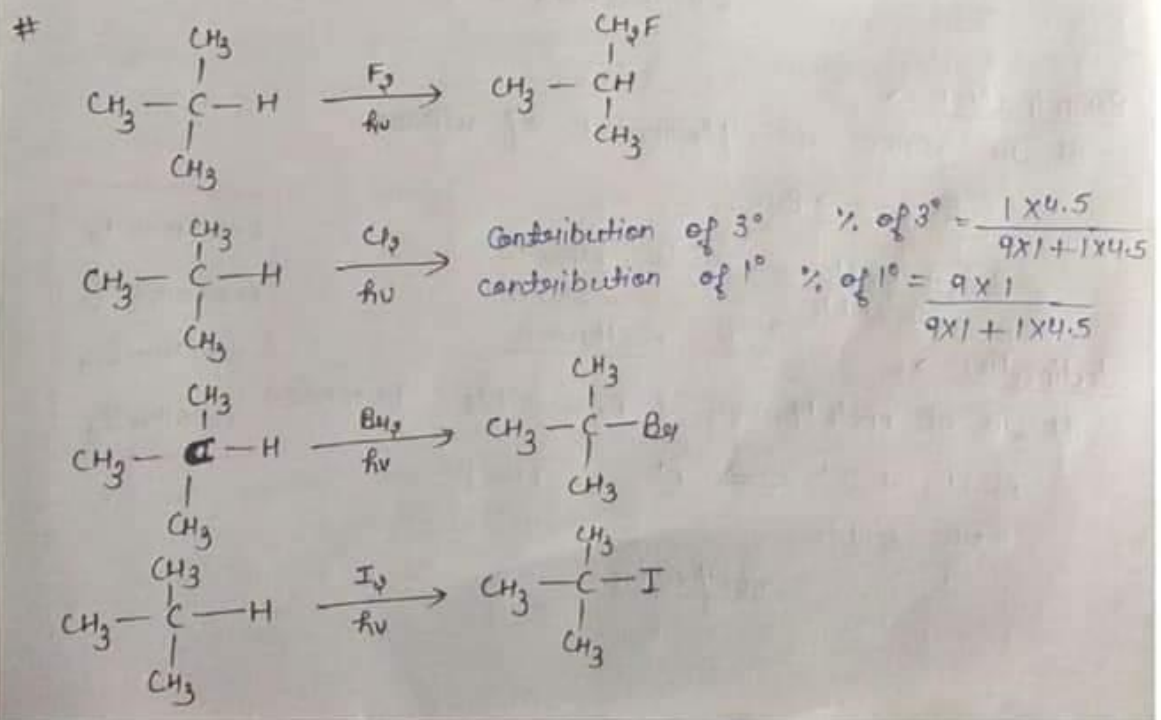 #
CH3
CH3 — C — H
CH3
F2
hν
CH2F
CH3 — CH
CH3
CH3
CH3 — C — H
CH3
Cl2
hν
Contribution of 3° % of 3° = 1 x 4.5 / 9x1 + 1x4.5
contribution of 1° % of 1° = 9 x 1 / 9x1 + 1x4.5
CH3
CH3 — C — H
CH3
Br2
hν
CH3
CH3 — C — Br
CH3
CH3
CH3 — C — H
CH3
I2
hν
CH3
CH3 — C — I
CH3